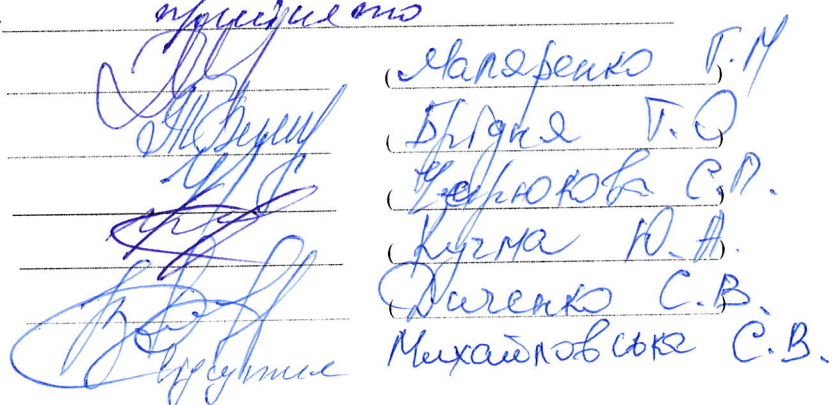 прийнято
(Маляренко Т.М)
(Брідня Т.О)
(Чернюкова С.П.)
(Кузма Ю.А.)
(Диченко С.В.)
відсутня Михайловська С.В.